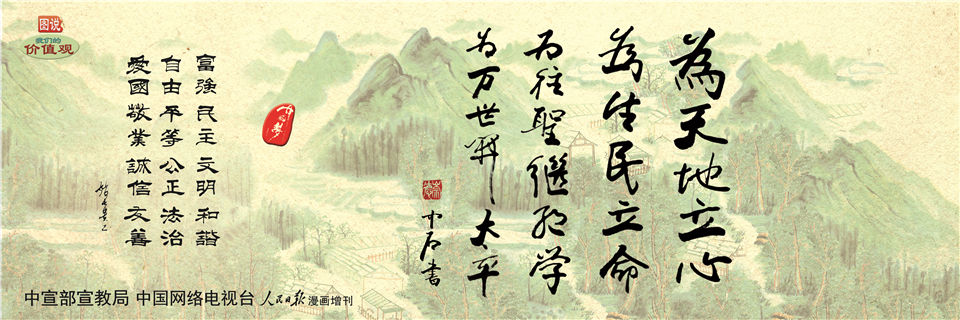 图说
我们的
价值观
為天地立心
為生民立命
为往聖継绝学
为万世開太平
中石書
中国梦
富強民主文明和諧
自由平等公正法治
愛國敬業誠信友善
中宣部宣教局 中国网络电视台 人民日报 漫画增刊